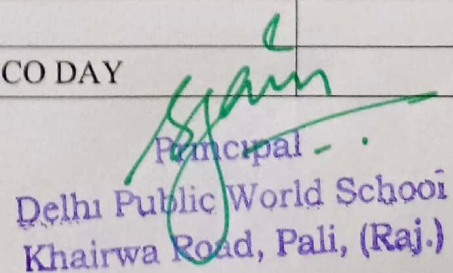 CO DAY
Principal
Delhi Public World School
Khairwa Road, Pali, (Raj.)